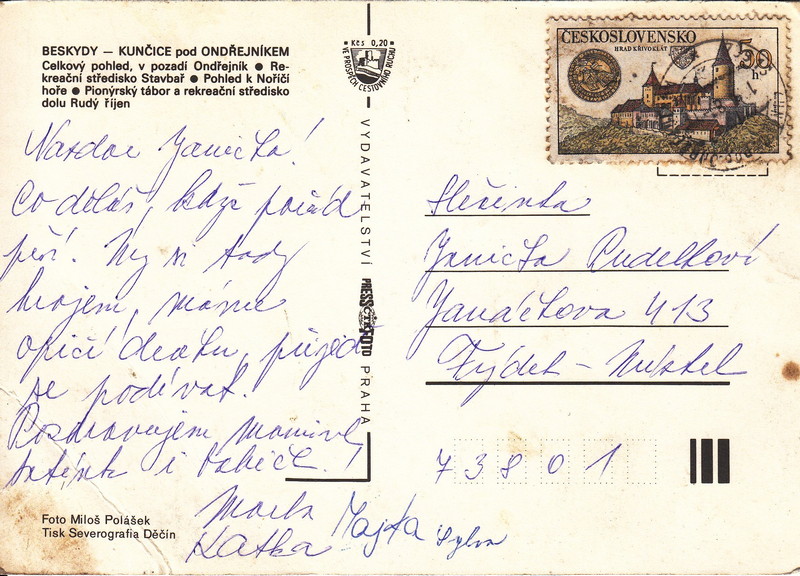 BESKYDY — KUNČICE pod ONDŘEJNÍKEM
Celkový pohled, v pozadí Ondřejník ● Re-
kreační středisko Stavbař ● Pohled k Noříčí
hoře ● Pionýrský tábor a rekreační středisko
dolu Rudý říjen
Nazdar Janičko!
Co děláš, když pořád
prší. My si tady
hrajem, máme
opičí dráhu, přijeď
se podívat.
Pozdravujem maminku
tatínk i babičk!
Katka Majka Sylva
Foto Miloš Polášek
Tisk Severografia Děčín
Kčs 0,20
VE PROSPĚCH CESTOVNÍHO RUCHU
VYDAVATELSTVÍ PRESSFOTO PRAHA
ČTK
ČESKOSLOVENSKO
HRAD KŘIVOKLÁT
50 h
Slečinka
Janička Pudelková
Janáčkova 413
Frýdek-Místek
73801